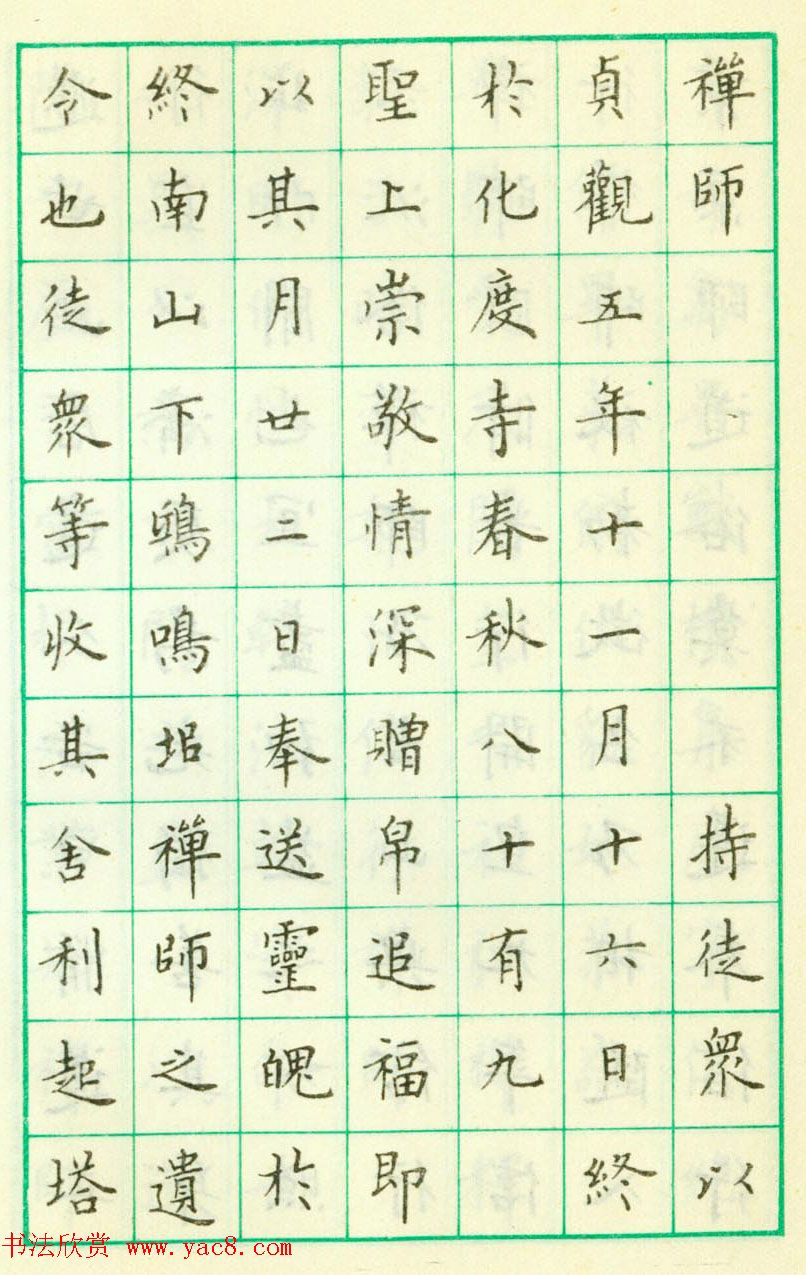 禪師持徒衆以
貞觀五年十一月十六日終
於化度寺春秋八十有九
聖上崇敬情深贈帛追福即
以其月廿二日奉送靈魄於
終南山下鴟鳴埳禪師之遺
令也徒衆等收其舍利起塔
书法欣赏 www.yac8.com